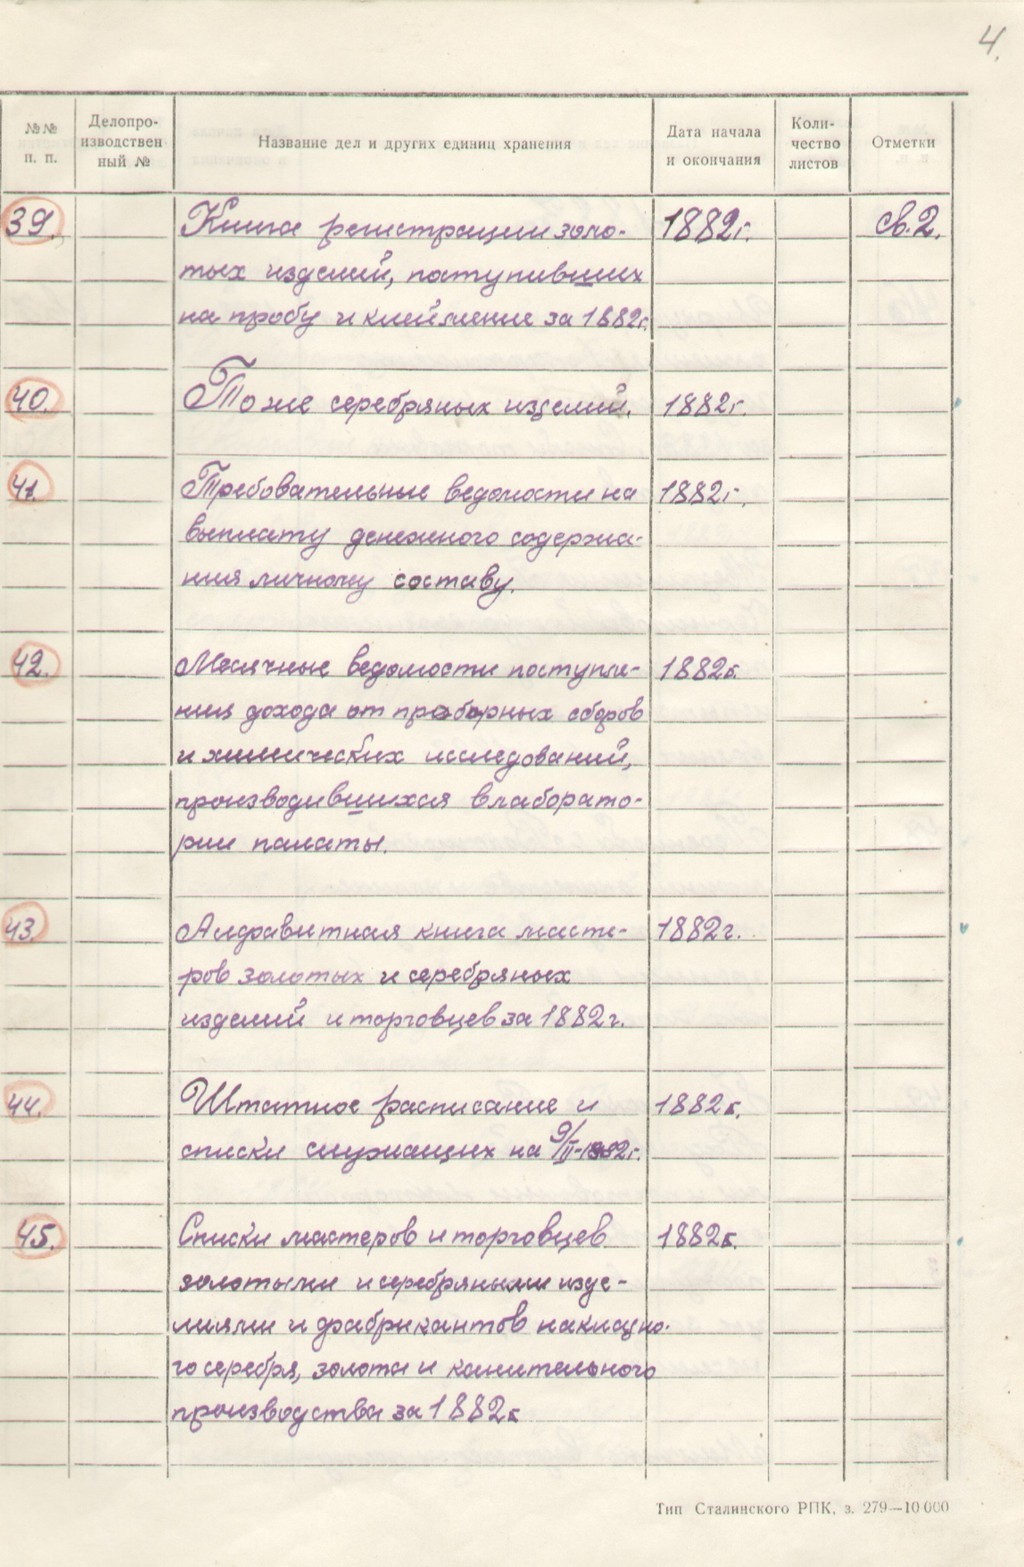 4.
№№ п. п.
Делопро-
изводствен
ный №
Название дел и других единиц хранения
Дата начала
и окончания
Коли-
чество
листов
Отметки
39. Книга регистрации золо- 1882г. св.2.
тых изделий, поступивших
на пробу и клеймение за 1882г.
40. То же серебряных изделий. 1882г.
41. Требовательные ведомости на 1882г.
выплату денежного содержа-
ния личному составу.
42. Месячные ведомости поступле- 1882г.
ния дохода от пробирных сборов
и химических исследований,
производившихся в лаборато-
рии палаты.
43. Алфавитная книга масте- 1882г.
ров золотых и серебряных
изделий и торговцев за 1882г.
44. Штатное расписание и 1882г.
списки служащих на 9/II-1882г.
45. Списки мастеров и торговцев 1882г.
золотыми и серебряными изде-
лиями и фабрикантов накладно-
го серебра, золота и канительного
производства за 1882г
Тип Сталинского РПК, з. 279—10 000